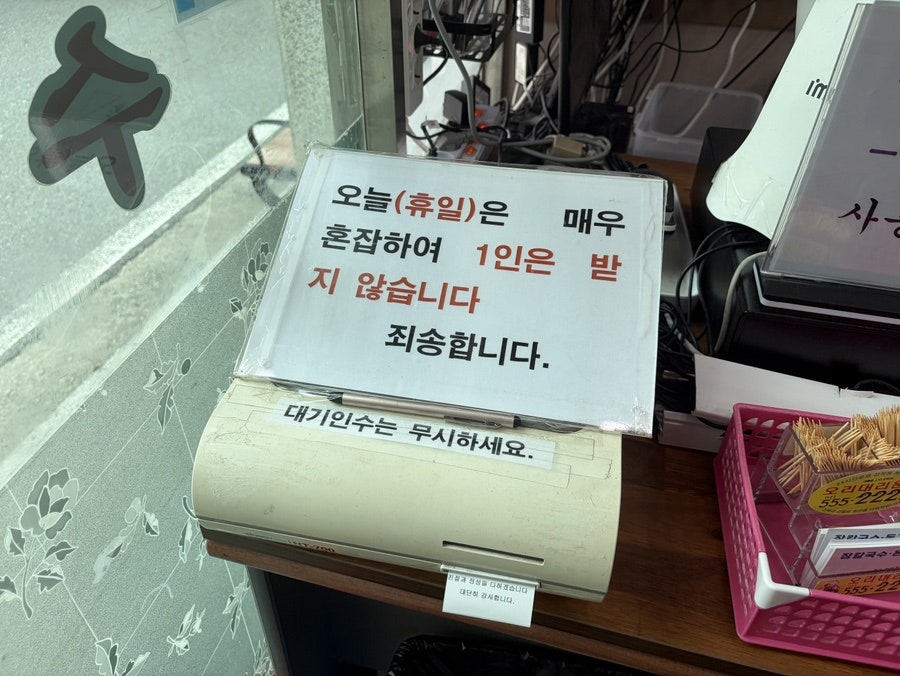 수
오늘(휴일)은 매우
혼잡하여 1인은 받
지 않습니다
죄송합니다.
대기인수는 무시하세요.
친절과 정성을 다하겠습니다
대단히 감사합니다.
I'm
오리대리운
555-222
장칼국수
555-22